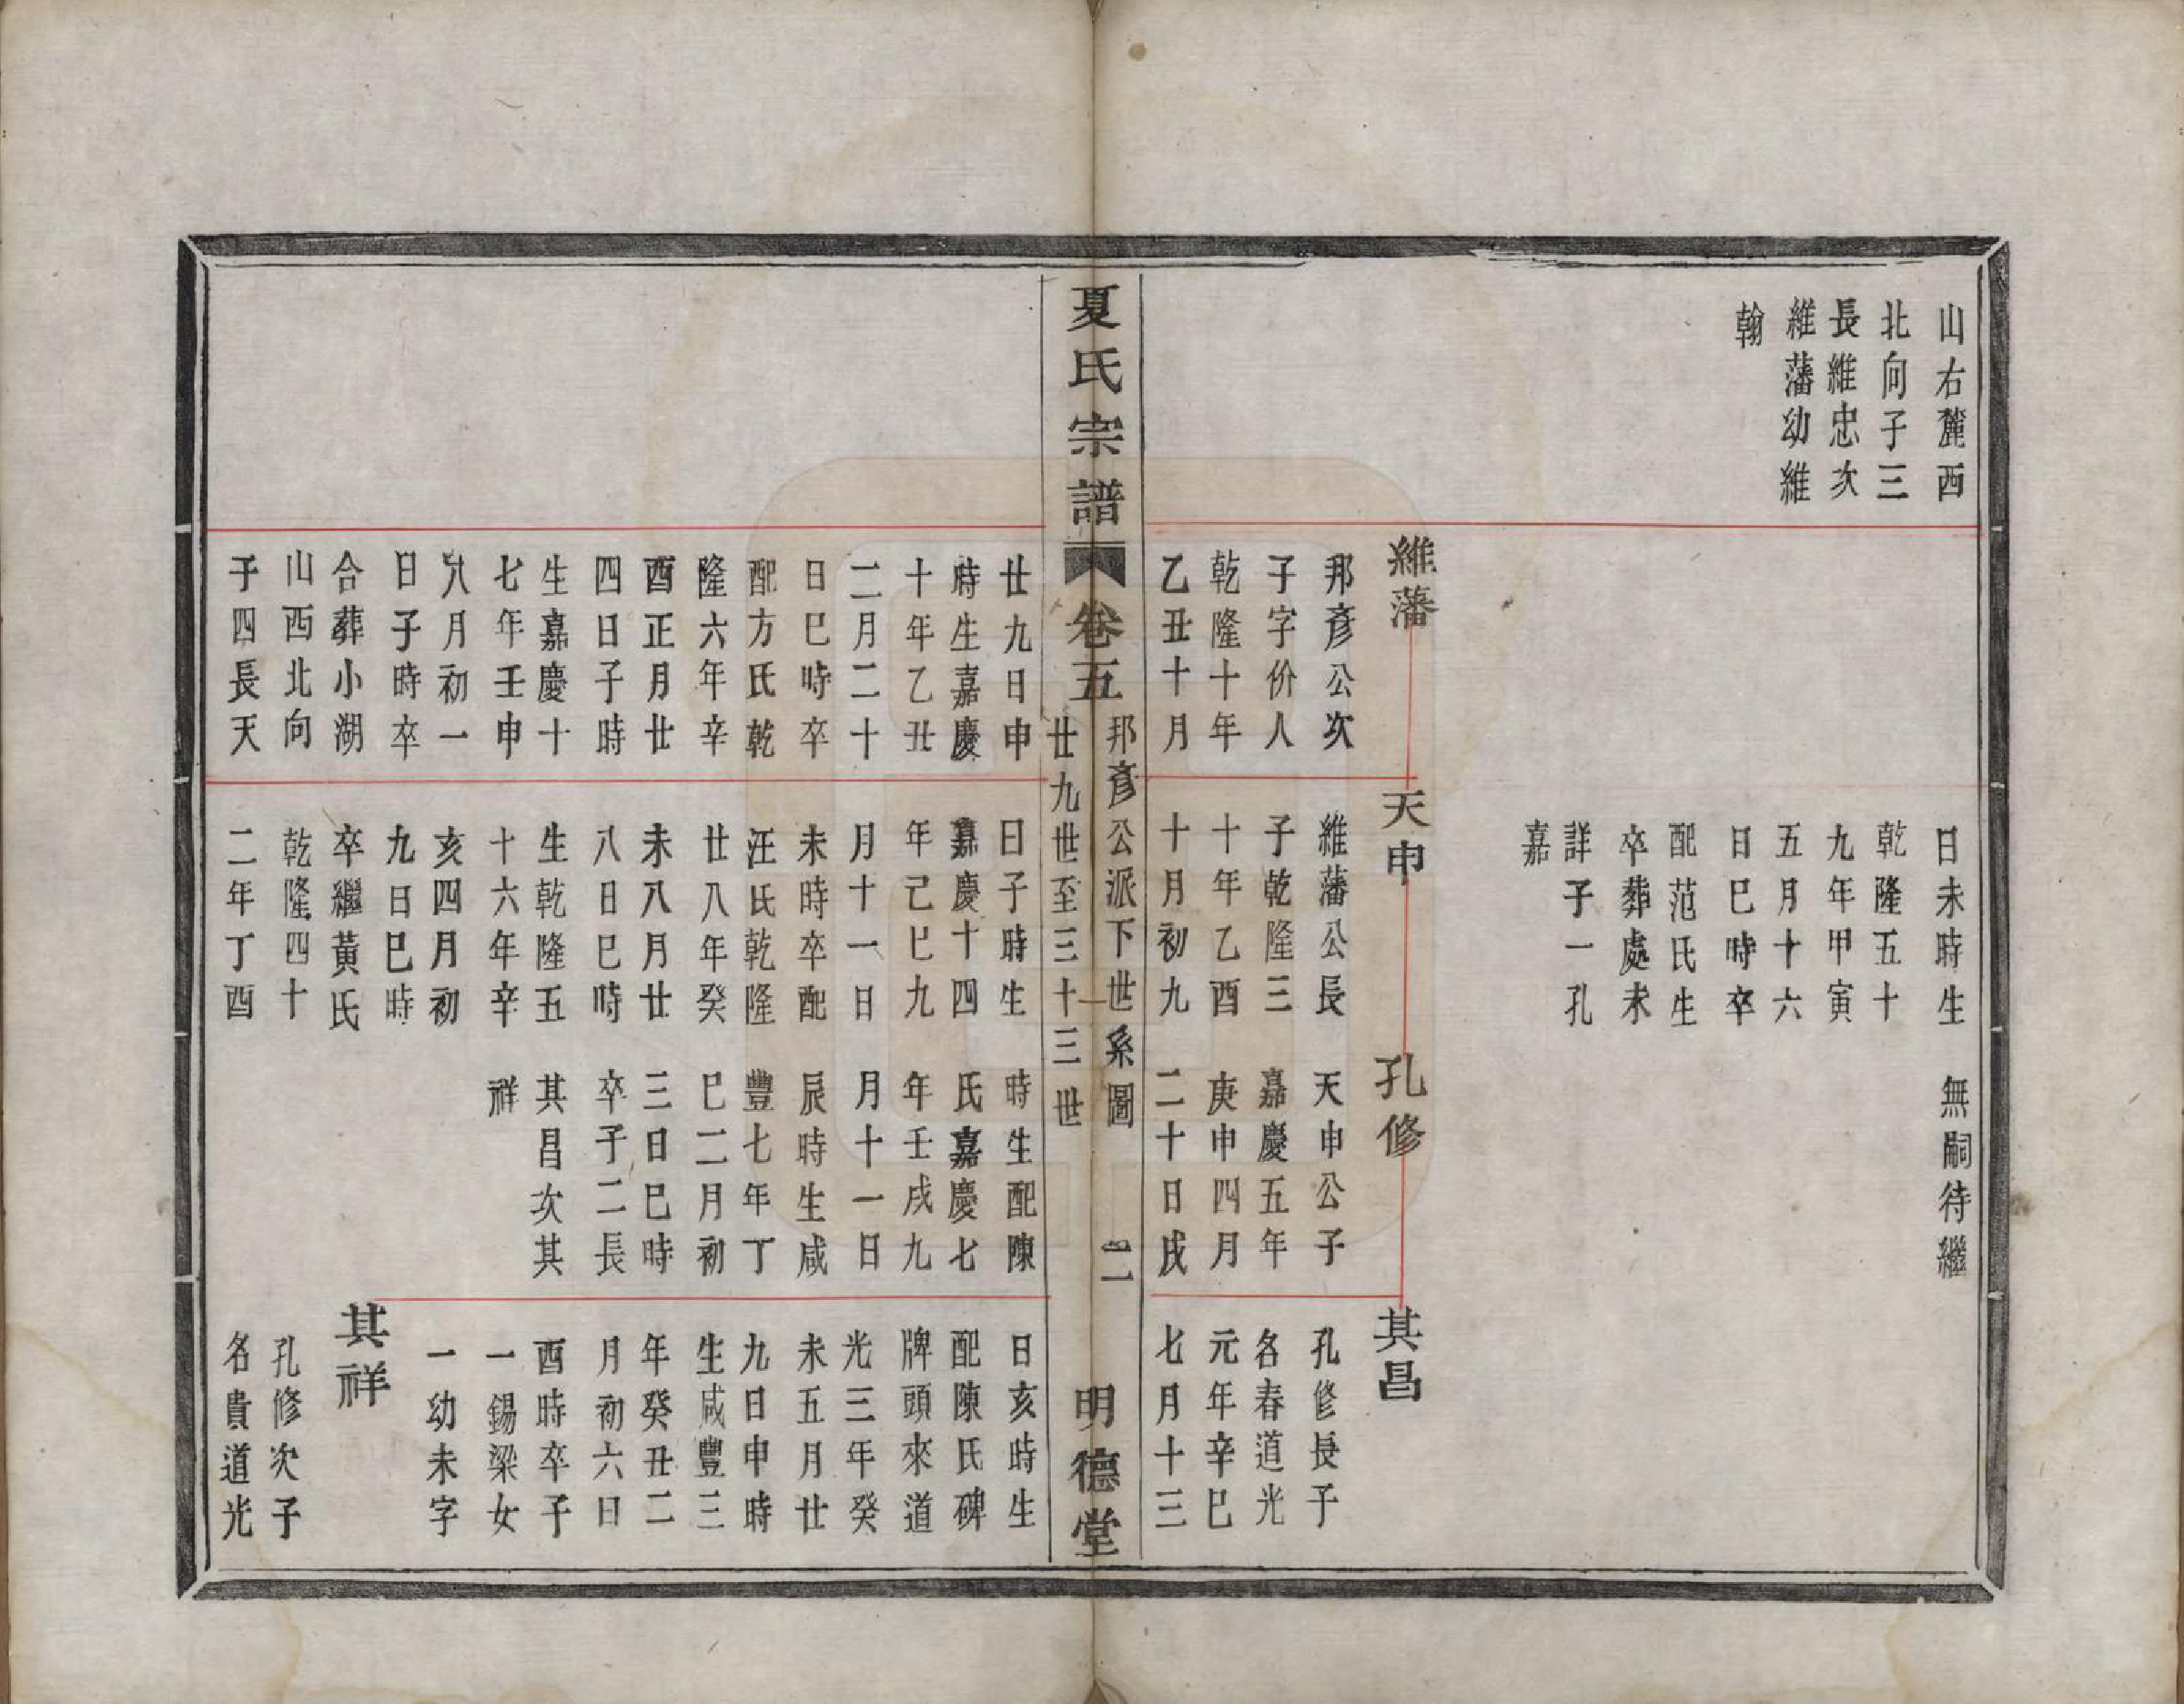 山右麓西
北向子三
長維忠次
維藩幼維
翰
維藩
邦彥公次
子字价人
乾隆十年
乙丑十月
日未時生
乾隆五十
九年甲寅
五月十六
日巳時卒
配范氏生
卒葬處未
詳子一孔
嘉
天申
維藩公長
子乾隆三
十年乙酉
十月初九
無嗣待繼
孔修
天申公子
嘉慶五年
庚申四月
二十日戌
其昌
孔修長子
名春道光
元年辛巳
七月十三
夏氏宗譜
卷五
邦彥公派下世系圖
廿九世至三十三世
二
明德堂
廿九日申
時生嘉慶
十年乙丑
二月二十
日巳時卒
配方氏乾
隆六年辛
酉正月廿
四日子時
生嘉慶十
七年壬申
八月初一
日子時卒
合葬小湖
山西北向
子四長天
日子時生
嘉慶十四
年己巳九
月十一日
未時卒配
汪氏乾隆
廿八年癸
未八月廿
八日巳時
生乾隆五
十六年辛
亥四月初
九日巳時
卒繼黃氏
乾隆四十
二年丁酉
時生配陳
氏嘉慶七
年壬戌九
月十一日
辰時生咸
豐七年丁
巳二月初
三日巳時
卒子二長
其昌次其
祥
日亥時生
配陳氏碑
牌頭來道
光三年癸
未五月廿
九日申時
生咸豐三
年癸丑二
月初六日
酉時卒子
一錫梁女
一幼未字
其祥
孔修次子
名貴道光